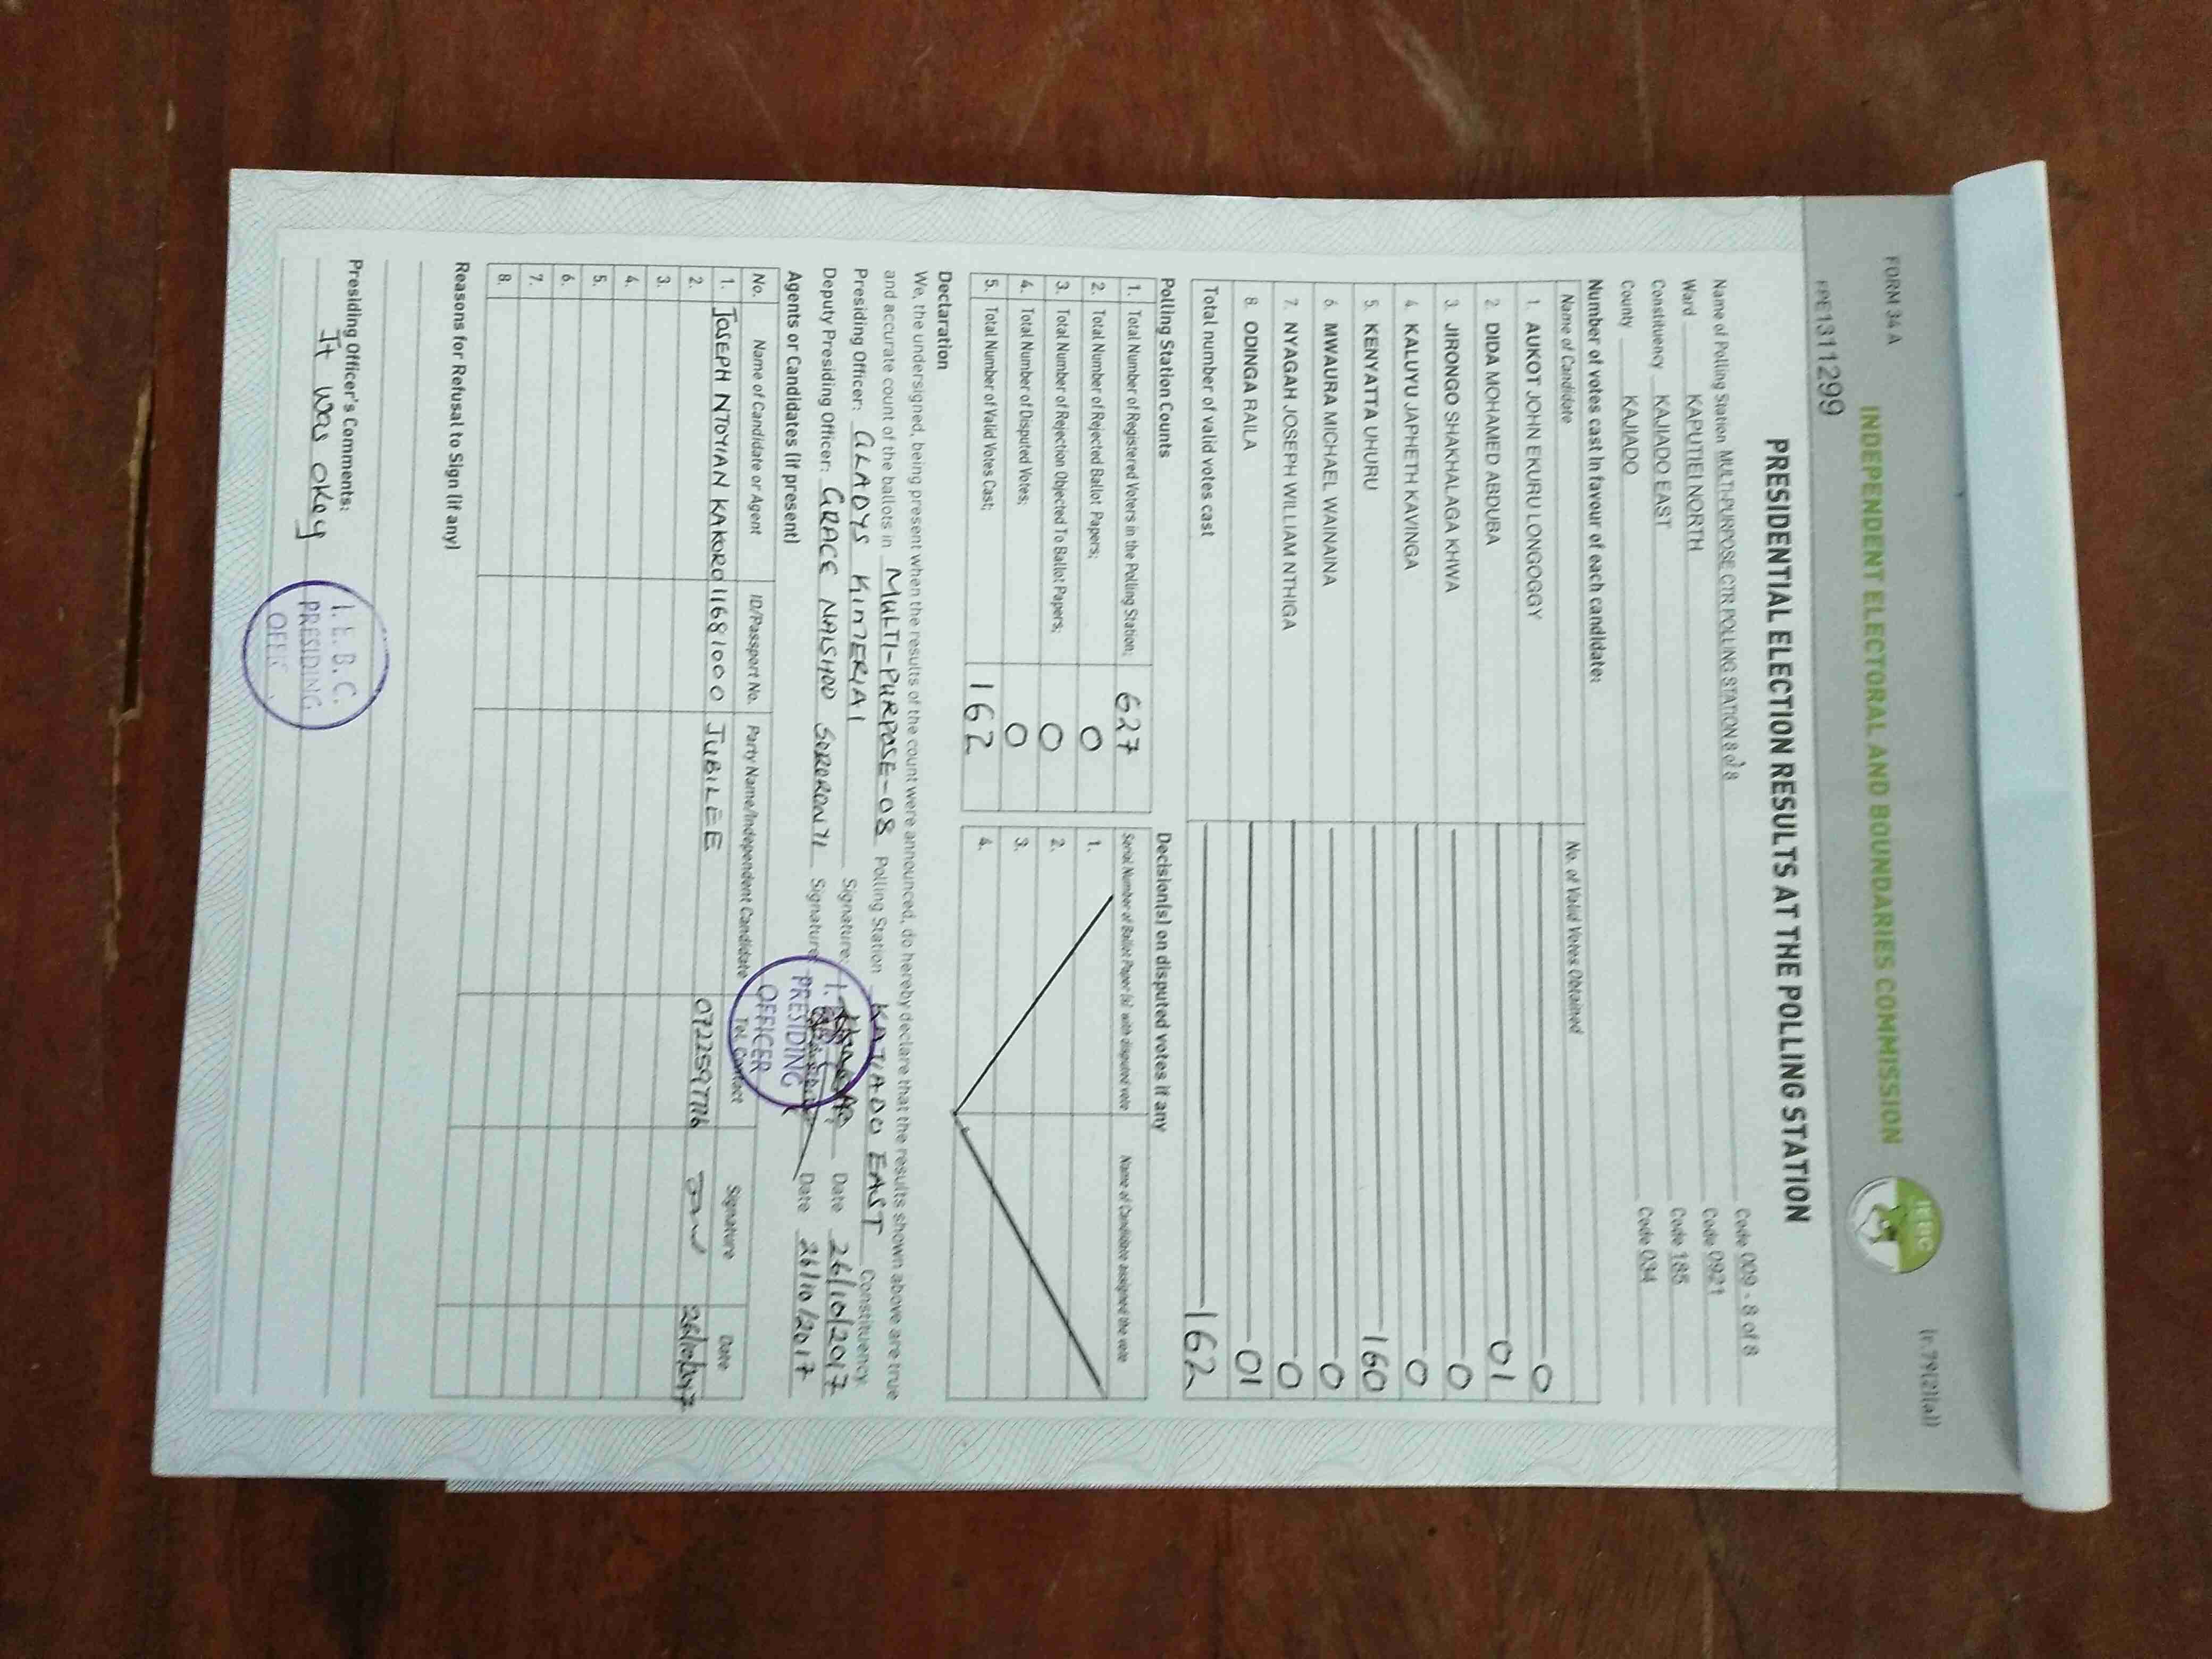 FORM 34 A
(r.79(2)(a))
INDEPENDENT ELECTORAL AND BOUNDARIES COMMISSION
IEBC
PRE1311299
PRESIDENTIAL ELECTION RESULTS AT THE POLLING STATION
Name of Polling Station MULTI-PURPOSE CTR POLLING STATION 8 of 8 Code 009 - 8 of 8
Ward KAPUTIEI NORTH Code 0921
Constituency KAJIADO EAST Code 185
County KAJIADO Code 034
Number of votes cast in favour of each candidate:
Name of Candidate No. of Valid Votes Obtained
1. AUKOT JOHN EKURU LONGOGGY 0
2. DIDA MOHAMED ABDUBA 01
3. JIRONGO SHAKHALAGA KHWA 0
4. KALUYU JAPHETH KAVINGA 0
5. KENYATTA UHURU 160
6. MWAURA MICHAEL WAINAINA 0
7. NYAGAH JOSEPH WILLIAM NTHIGA 0
8. ODINGA RAILA 01
Total number of valid votes cast 162
Polling Station Counts
1. Total Number of Registered Voters in the Polling Station; 627
2. Total Number of Rejected Ballot Papers; 0
3. Total Number of Rejection Objected To Ballot Papers; 0
4. Total Number of Disputed Votes; 0
5. Total Number of Valid Votes Cast; 162
Decision(s) on disputed votes if any
Serial Number of Ballot Paper (s) with disputed vote Name of Candidate assigned the vote
1.
2.
3.
4.
Declaration
We, the undersigned, being present when the results of the count were announced, do hereby declare that the results shown above are true
and accurate count of the ballots in MULTI-PURPOSE-08 Polling Station KAJIADO EAST Constituency.
Presiding Officer: GLADYS KINTERIAI Signature: Date 26/10/2017
Deputy Presiding Officer: GRACE NALSHOO Signature Date 26/10/2017
I.
PRESIDING
OFFICER
Agents or Candidates (if present)
No. Name of Candidate or Agent ID/Passport No. Party Name/Independent Candidate Tel. Contact Signature Date
1. JOSEPH NTOYIAN KAKORO 11681000 JUBILEE 26/10/2017
2.
3.
4.
5.
6.
7.
8.
Reasons for Refusal to Sign (if any)
Presiding Officer's Comments:
It was okey
I.E.B.C.
PRESIDING